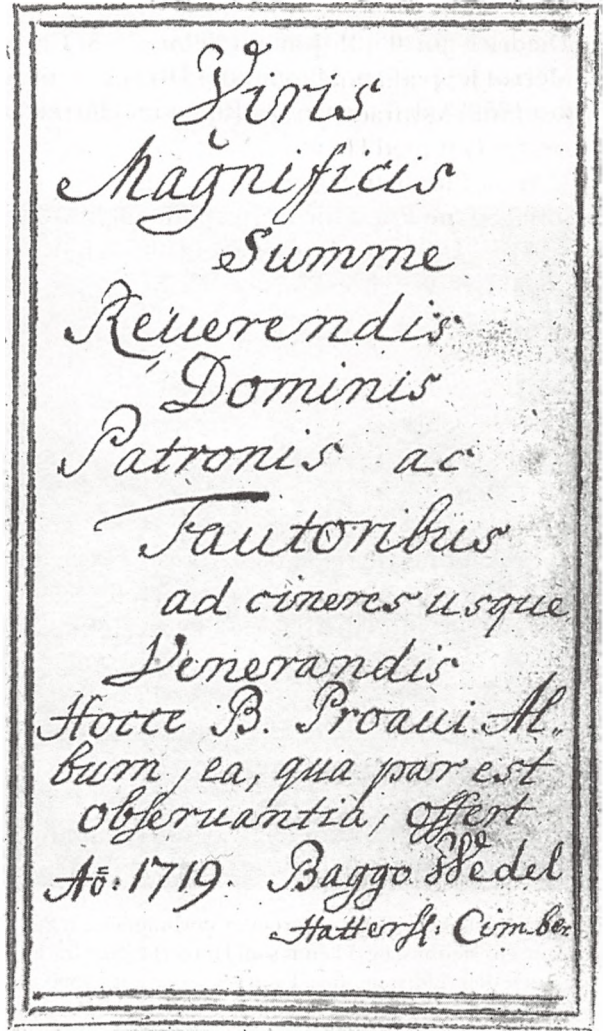 Viris
Magnificis
Summe
Reuerendis
Dominis
Patronis ac
Fautoribus
ad cineres usque
Venerandis
Hocce B. Proaui Al-
bum, ea, qua par est
obseruantia, offert
Aō: 1719. Baggo Wedel
Hattersl: Cimber